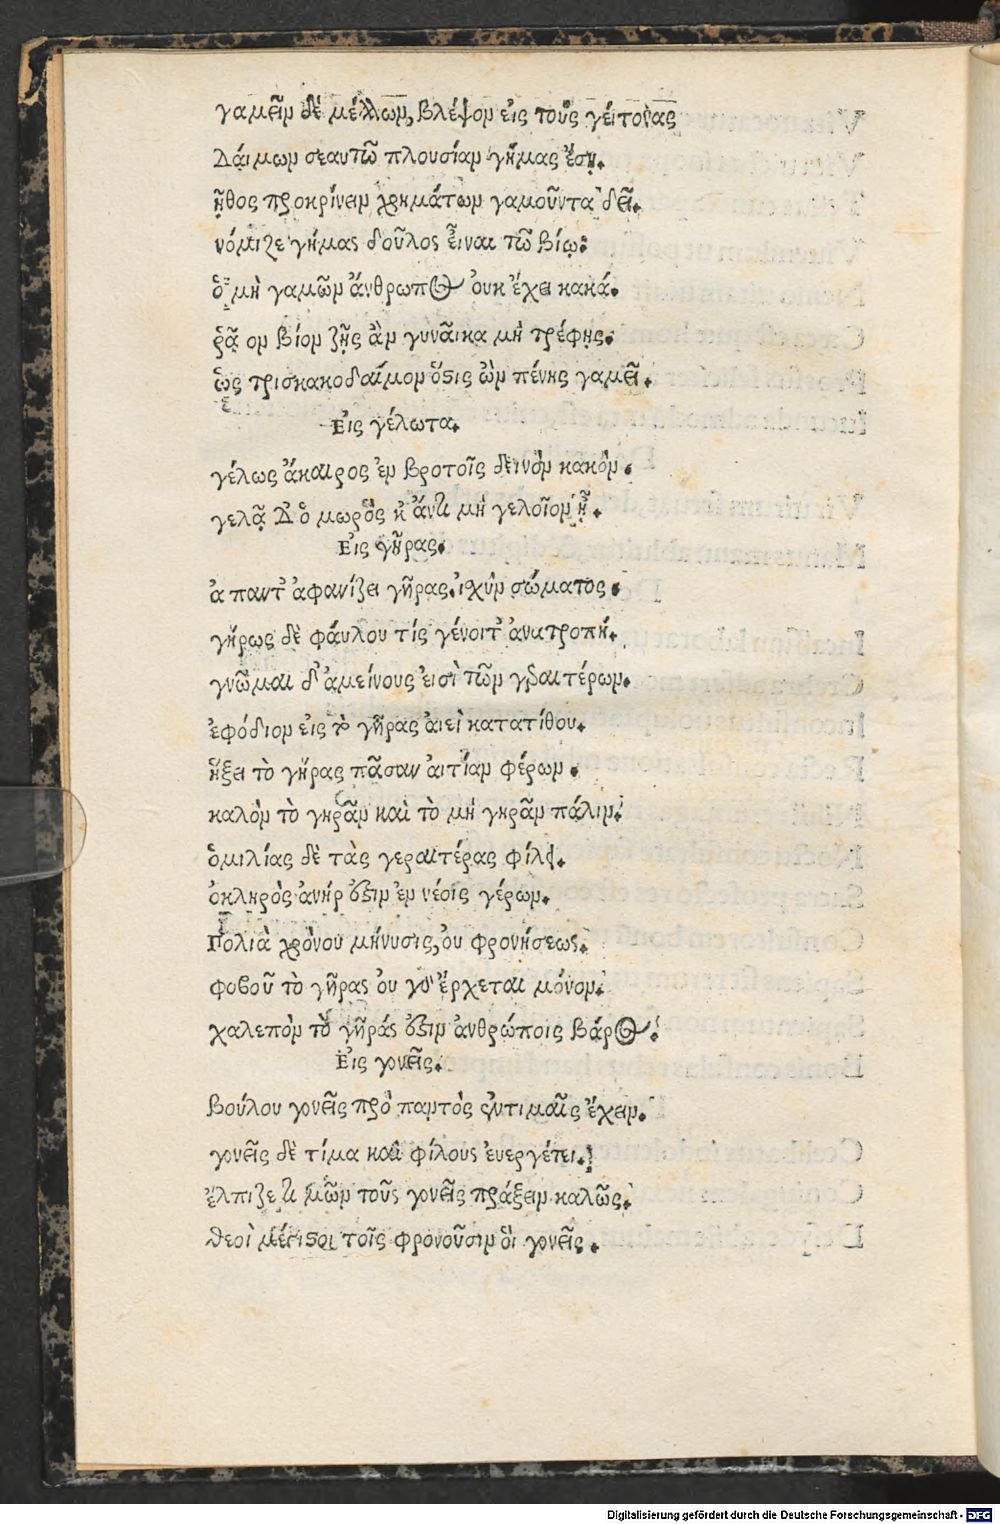 γαμεῖν δὲ μέλλων, βλέψον εἰς τοὺς γείτονας
Δάιμων σεαυτῶ πλουσίαν γήμας ἔσῃ.
ἦθος προκρίνειν χρημάτων γαμοῦντα δεῖ.
νόμιζε γήμας δοῦλος εἶναι τῶ βίῳ:
ὁ μὴ γαμῶν ἄνθρωπος ουκ ἔχει κακά.
ῥᾷ ον βίον ζῇς ἂν γυναῖκα μὴ τρέφῃς.
ὡς τρισκακοδαίμον ὅστις ὢν πένης γαμεῖ.
Εἰς γέλωτα.
γέλως ἄκαιρος ἐν βροτοῖς δεινὸν κακὸν.
γελᾷ δ' ὁ μωρὸς κἄν τι μὴ γελοῖον ᾖ.
Εἰς γῆρας.
ἁ παντ' ἀφανίζει γῆρας. ἰχὺν σώματος.
γήρως δὲ φάυλου τίς γένοιτ' ἀνατροπή.
γνῶμαι δ' ἀμείνους ἐισὶ τῶν γραιτέρων.
ἐφόδιον εἰς τὸ γῆρας ἀιεὶ κατατίθου.
ἥξει τὸ γῆρας πᾶσαν ἀιτίαν φέρων.
καλὸν τὸ γηρᾶν καὶ τὸ μὴ γηρᾶν πάλιν.
ὁμιλίας δὲ τὰς γεραιτέρας φίλει.
ὀκληρὸς ἀνήρ ἐστιν ἐν νέοις γέρων.
Πολιὰ χρόνου μήνυσις, ὀυ φρονήσεως.
φοβοῦ τὸ γῆρας ὀυ γὰρ ἔρχεται μόνον.
χαλεπὸν τὸ γῆράς ἐστιν ἀνθρώποις βάρος.
Εἰς γονεῖς.
βούλου γονεῖς πρὸ παντὸς ἐντιμαῖς ἔχειν.
γονεῖς δὲ τίμα καὶ φίλους ἐυεργέτει.
ἔλπιζε τιμῶν τοὺς γονεῖς πράξειν καλῶς.
θεοὶ μέγιστοι τοῖς φρονοῦσιν ὅι γονεῖς.
Digitalisierung gefördert durch die Deutsche Forschungsgemeinschaft - DFG